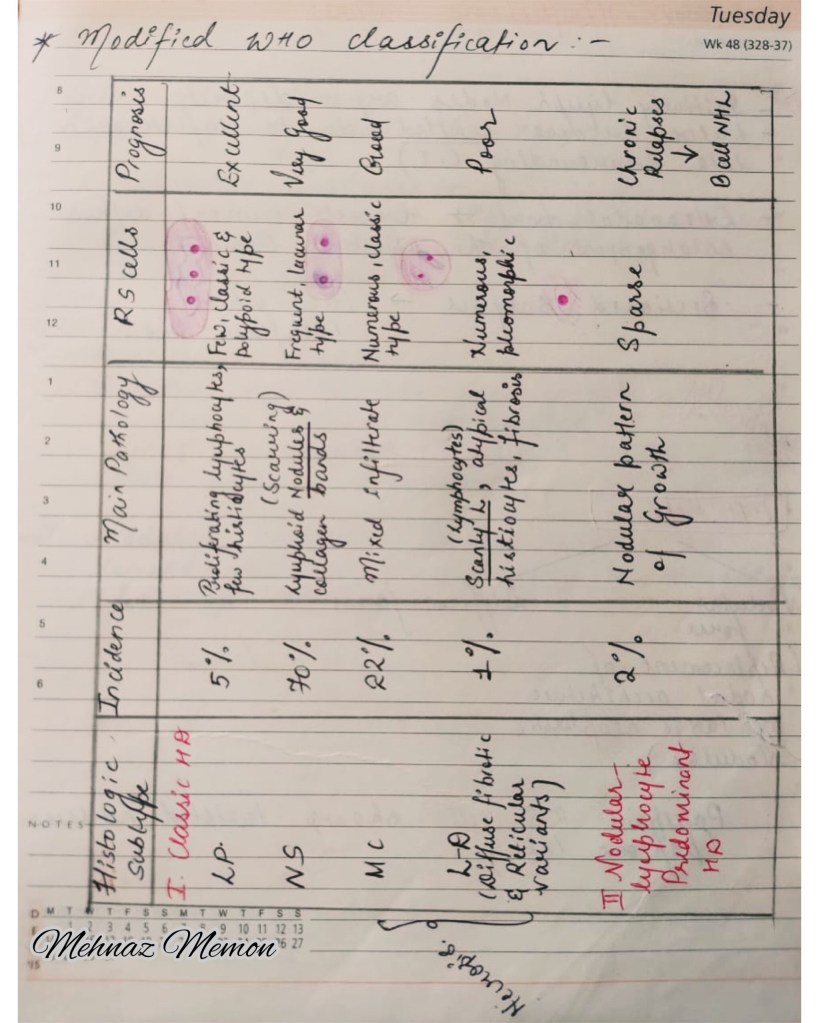 Tuesday
Wk 48 (328-37)
* Modified WHO classification :-
Histologic Subtype
Incidence
Main Pathology
RS cells
Prognosis
I. Classic HD
LP.
5%
Proliferating lymphocytes,
few histiocytes
Few, classic &
Polypoid type
Excellent
NS
70%
(Scarring)
Lymphoid Nodules &
collagen bands
Frequent, lacunar
type
Very Good
MC
22%
Mixed Infilterate
Numerous, classic
type
Good
L-D
(Diffuse fibrotic
& Reticular
variants)
1%
(Lymphocytes)
Scanty L, atypical
histiocytes, fibrosis
Numerous,
pleomorphic
Poor
II Nodular-
lymphocyte
Predominant
HD
2%
Nodular pattern
of Growth
Sparse
Chronic
Relapses
↓
B cell NHL
8
9
10
11
12
1
2
3
4
5
6
NOTES
D M T W T F S S M T W T F S S
1 2 3 4 5 6 7 8 9 10 11 12 13
26 27
'15
Mehnaz Memon